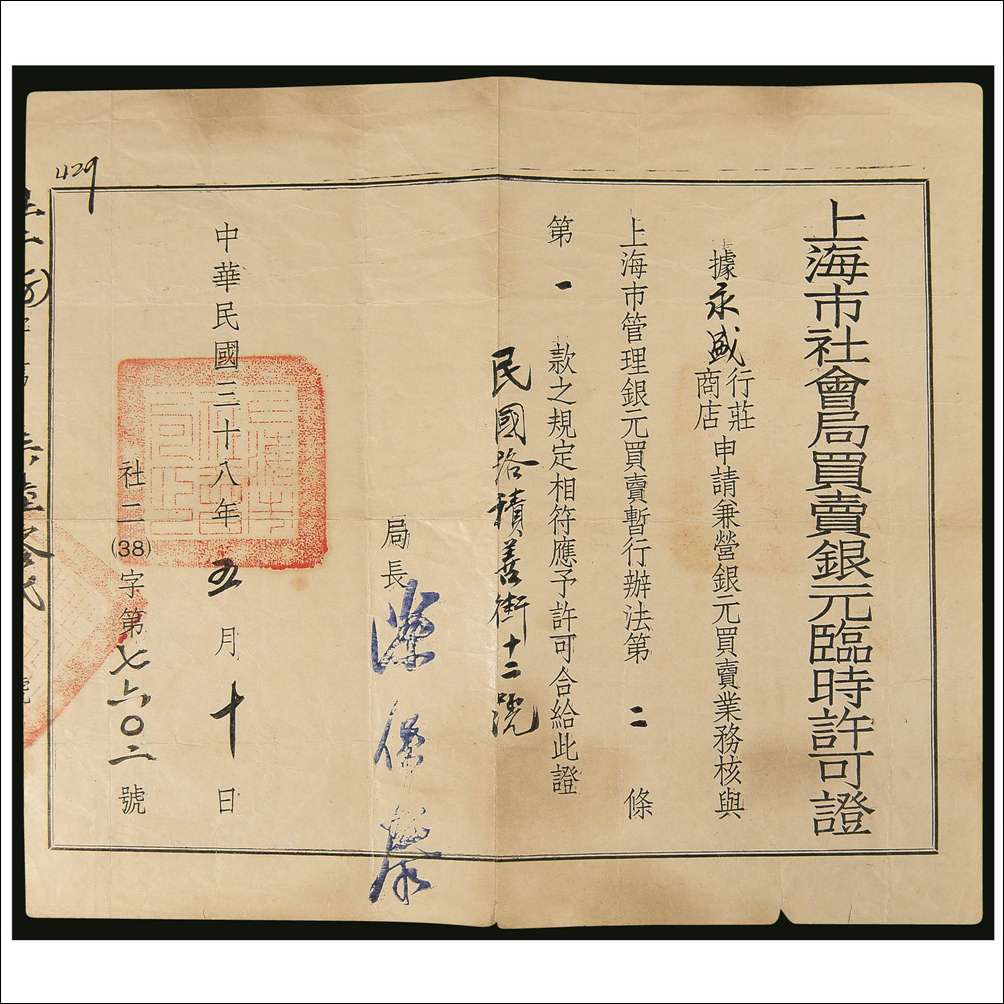 上海市社會局買賣銀元臨時許可證
據永盛行莊商店申請兼營銀元買賣業務核與
上海市管理銀元買賣暫行辦法第二條
第一款之規定相符應予許可合給此證
民國路積善街十二號
局長
中華民國三十八年五月十日
社二(38)字第七六〇二號
429